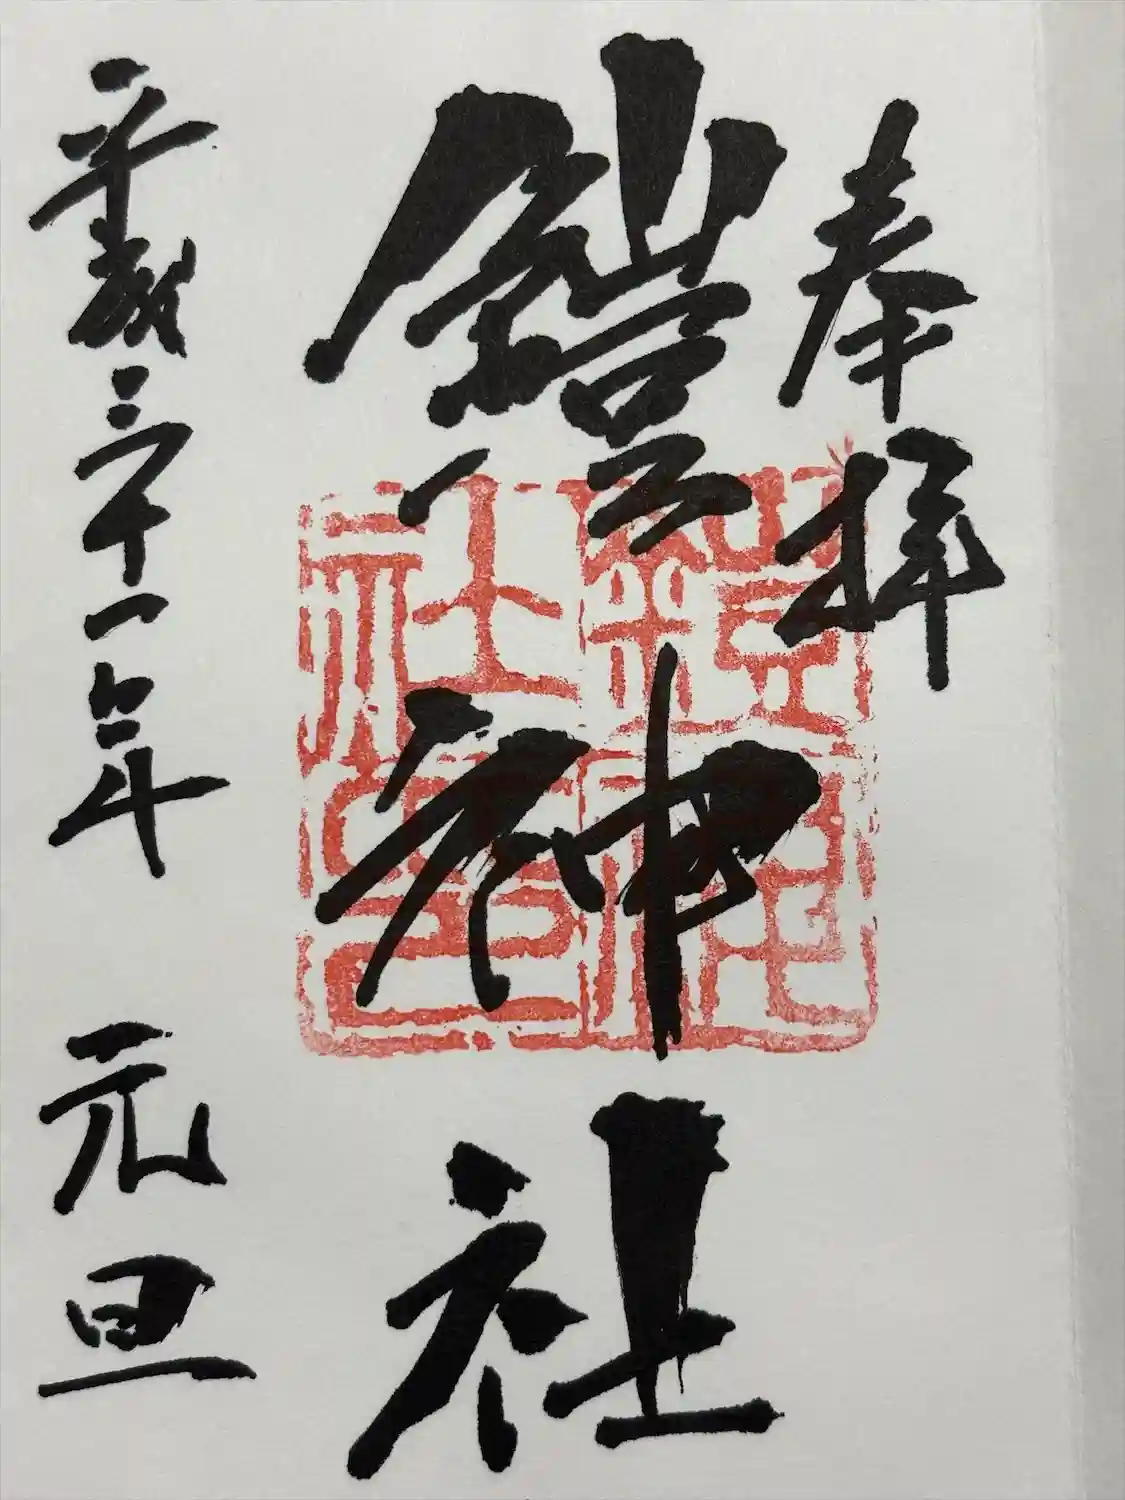 奉拝
鎧神社
平成三十一年 元旦
鎧神
社印